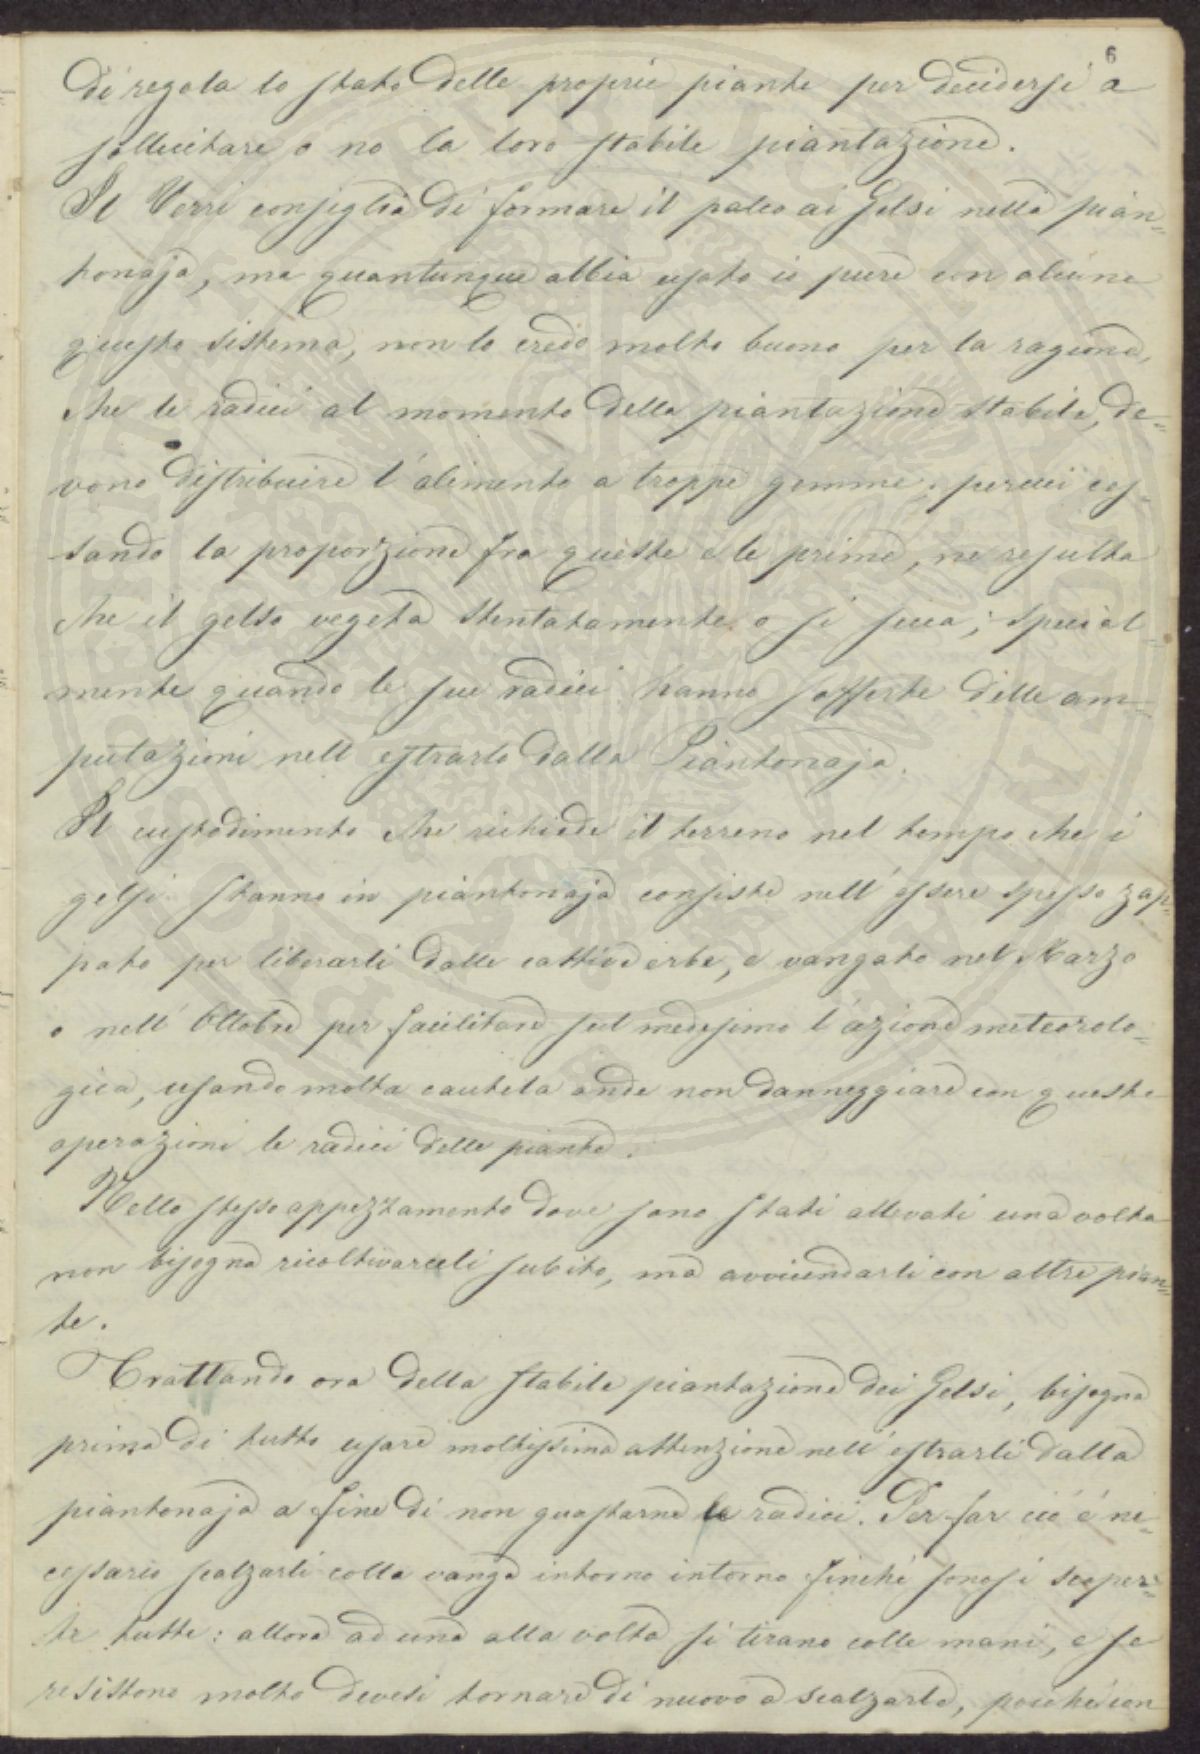 6
di regola lo stato delle proprie piante per decidersi a
sollecitare o no la loro stabile piantazione.
Il Verri consiglia di formare il palco ai Gelsi nella pian=
tonaja, ma quantunque abbia usato io pure con alcune
questo sistema, non lo credo molto buono per la ragione,
che le radici al momento della piantazione stabile, de=
vono distribuire l'alimento a troppe gemme; percui ces=
sando la proporzione fra queste e le prime, ne resulta
che il gelso vegeta stentatamente o si secca; special=
mente quando le sue radici hanno sofferte delle am=
putazioni nell estrarlo dalla Piantonaja.
Il custodimento che richiede il terreno nel tempo che i
gelsi stanno in piantonaja consiste nell'essere spesso zap=
pato per liberarli dalle cattive erbe, e vangato nel Marzo
o nell'Ottobre per facilitare sul medesimo l'azione meteorolo=
gica, usando molta cautela onde non danneggiare con queste
operazioni le radici delle piante.
Nello stesso appezzamento dove sono stati allevati una volta
non bisogna ricoltivarceli subito, ma avvicendarli con altre pian=
te.
Trattando ora della stabile piantazione dei Gelsi, bisogna
prima di tutto usare moltissima attenzione nell'estrarli dalla
piantonaja a fine di non guastarne le radici. Per far ciò è ne=
cessario scalzarli colla vanga intorno intorno finché sonosi scoper=
te tutte: allora ad una alla volta si tirano colle mani, e se
resistono molto devesi tornare di nuovo a scalzarle, poiché con